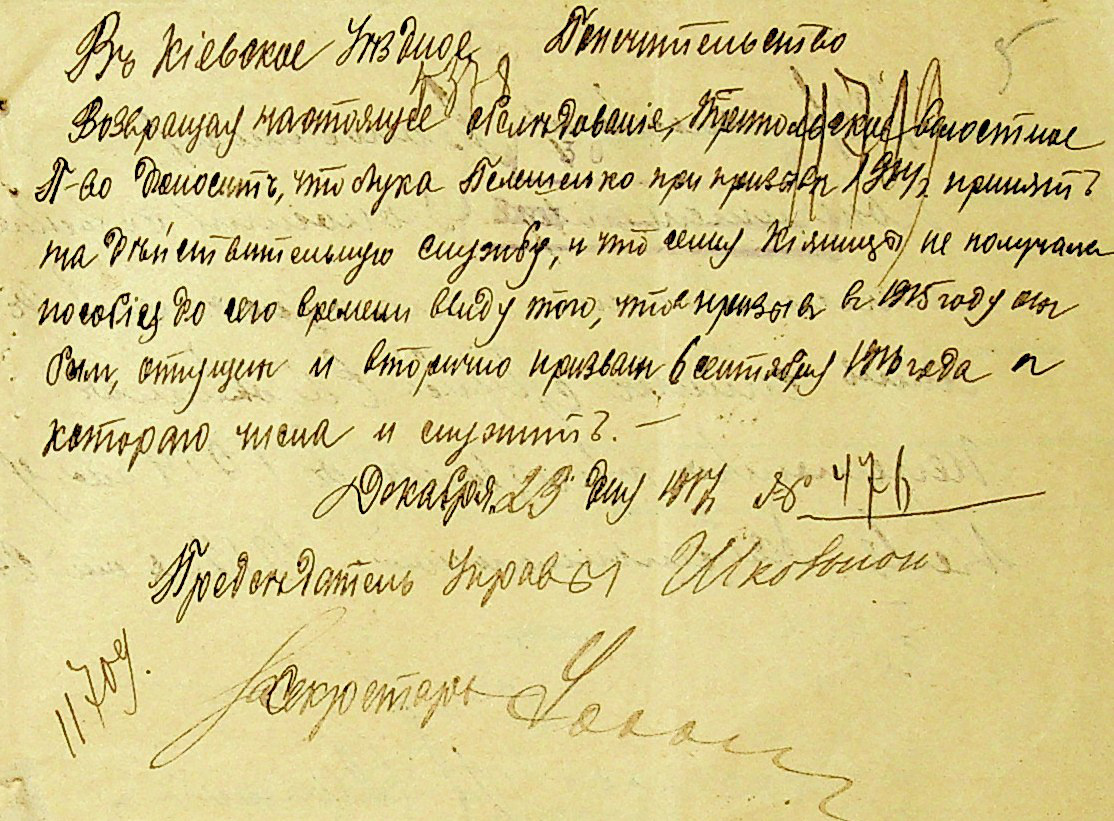 Въ Кіевское Уѣздное Попечительство
5
Возвращая настоящее обслѣдованіе, Трипольское волостное
П-во доноситъ, что Лука при призывѣ принятъ
на дѣйствительную службу, и что семья не получала
пособія до сего времени ввиду того, что призыв в 1915 году он
был, отпущен и вторично призван 6 сентября 1916 года с
котораго числа и служитъ. —
Декабря 23 дня 1917 № 476
Предсѣдатель Управы
11709.
Секретарь